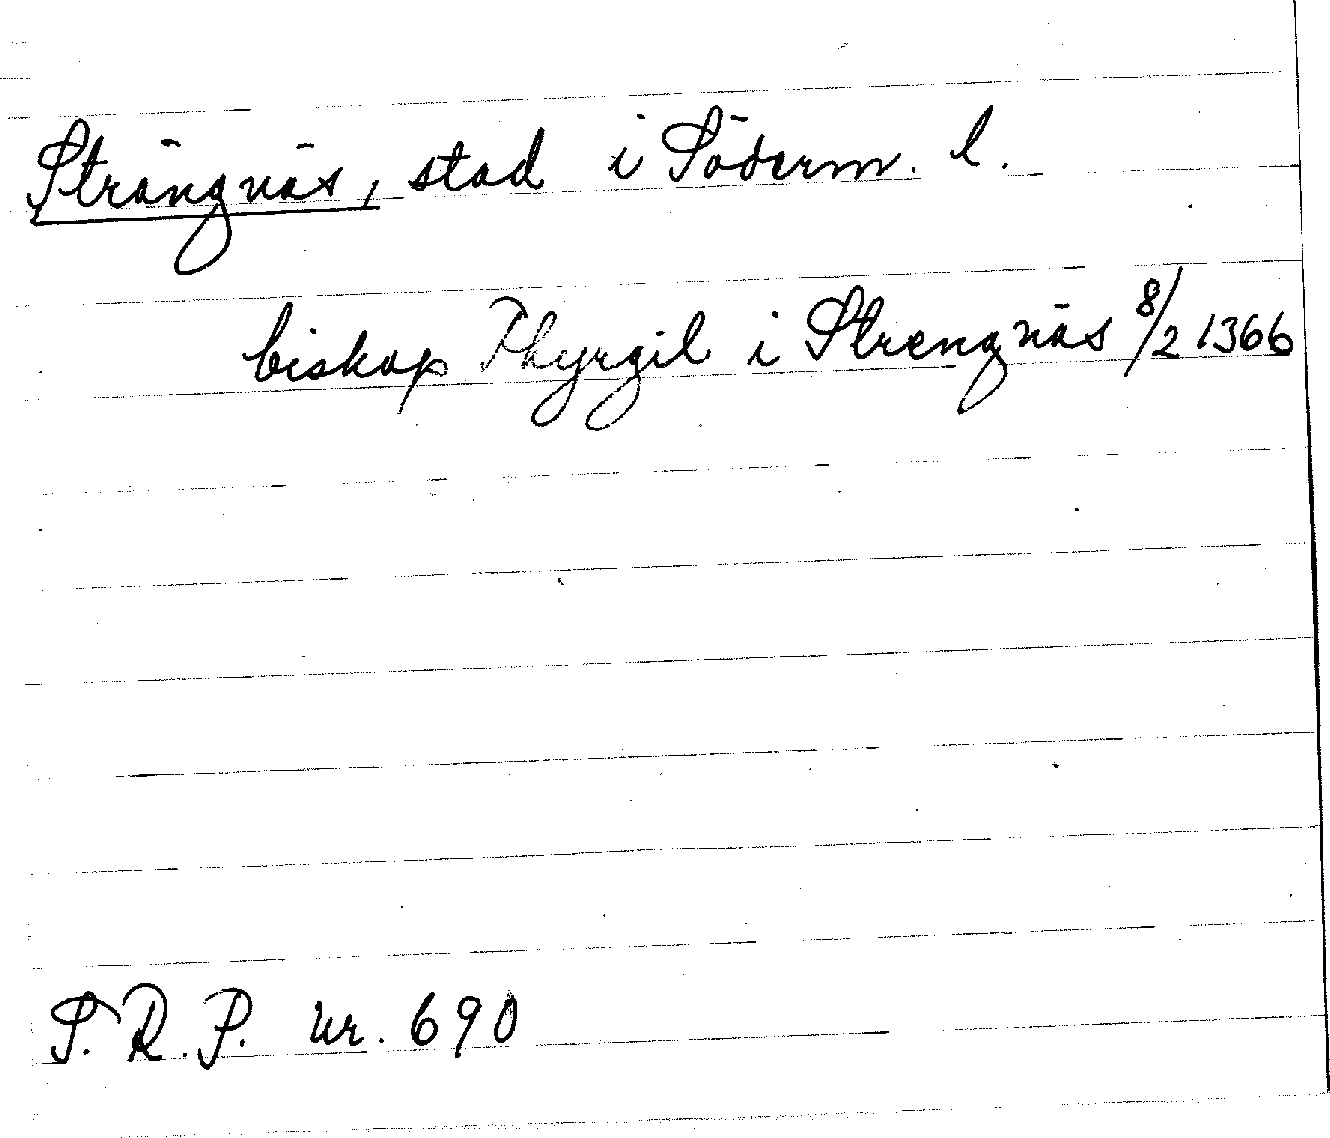 Strängnäs, stad i Söderm. l.
biskop Thyrgil i Strengnäs 8/2 1366
S.R.P. nr. 690